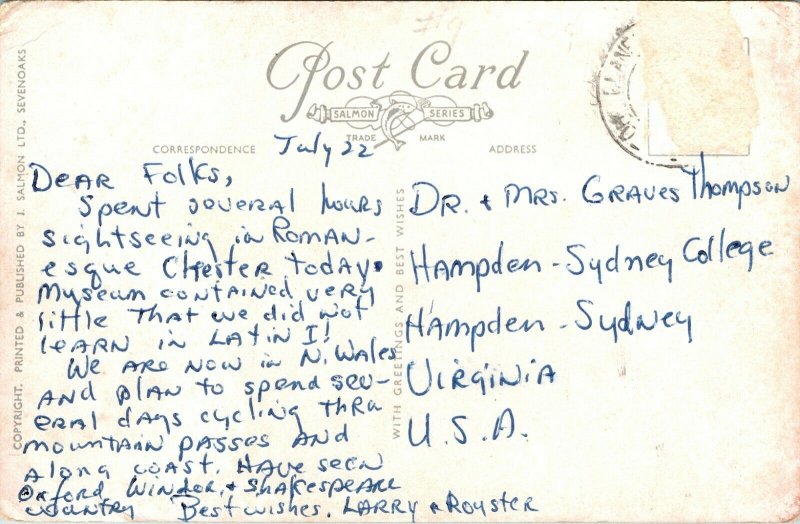 Post Card
SALMON SERIES
TRADE MARK
CORRESPONDENCE
ADDRESS
July 22
DEAR FOLKS,
Spent several hours
sightseeing in ROMAN-
esque Chester today.
Museum contained very
little that we did not
LEARN IN LATIN I!
We are now in N. Wales
AND plan to spend sev-
eral days cycling thru
mountain passes and
along coast. Have seen
Oxford, Windor, & Shakespeare
country Best wishes, LARRY & ROYSTER
DR. & MRS. GRAVES Thompson
Hampden-Sydney College
Hampden-Sydney
VIRGINIA
U.S.A.
COPYRIGHT, PRINTED & PUBLISHED BY J. SALMON LTD., SEVENOAKS
WITH GREETINGS AND BEST WISHES